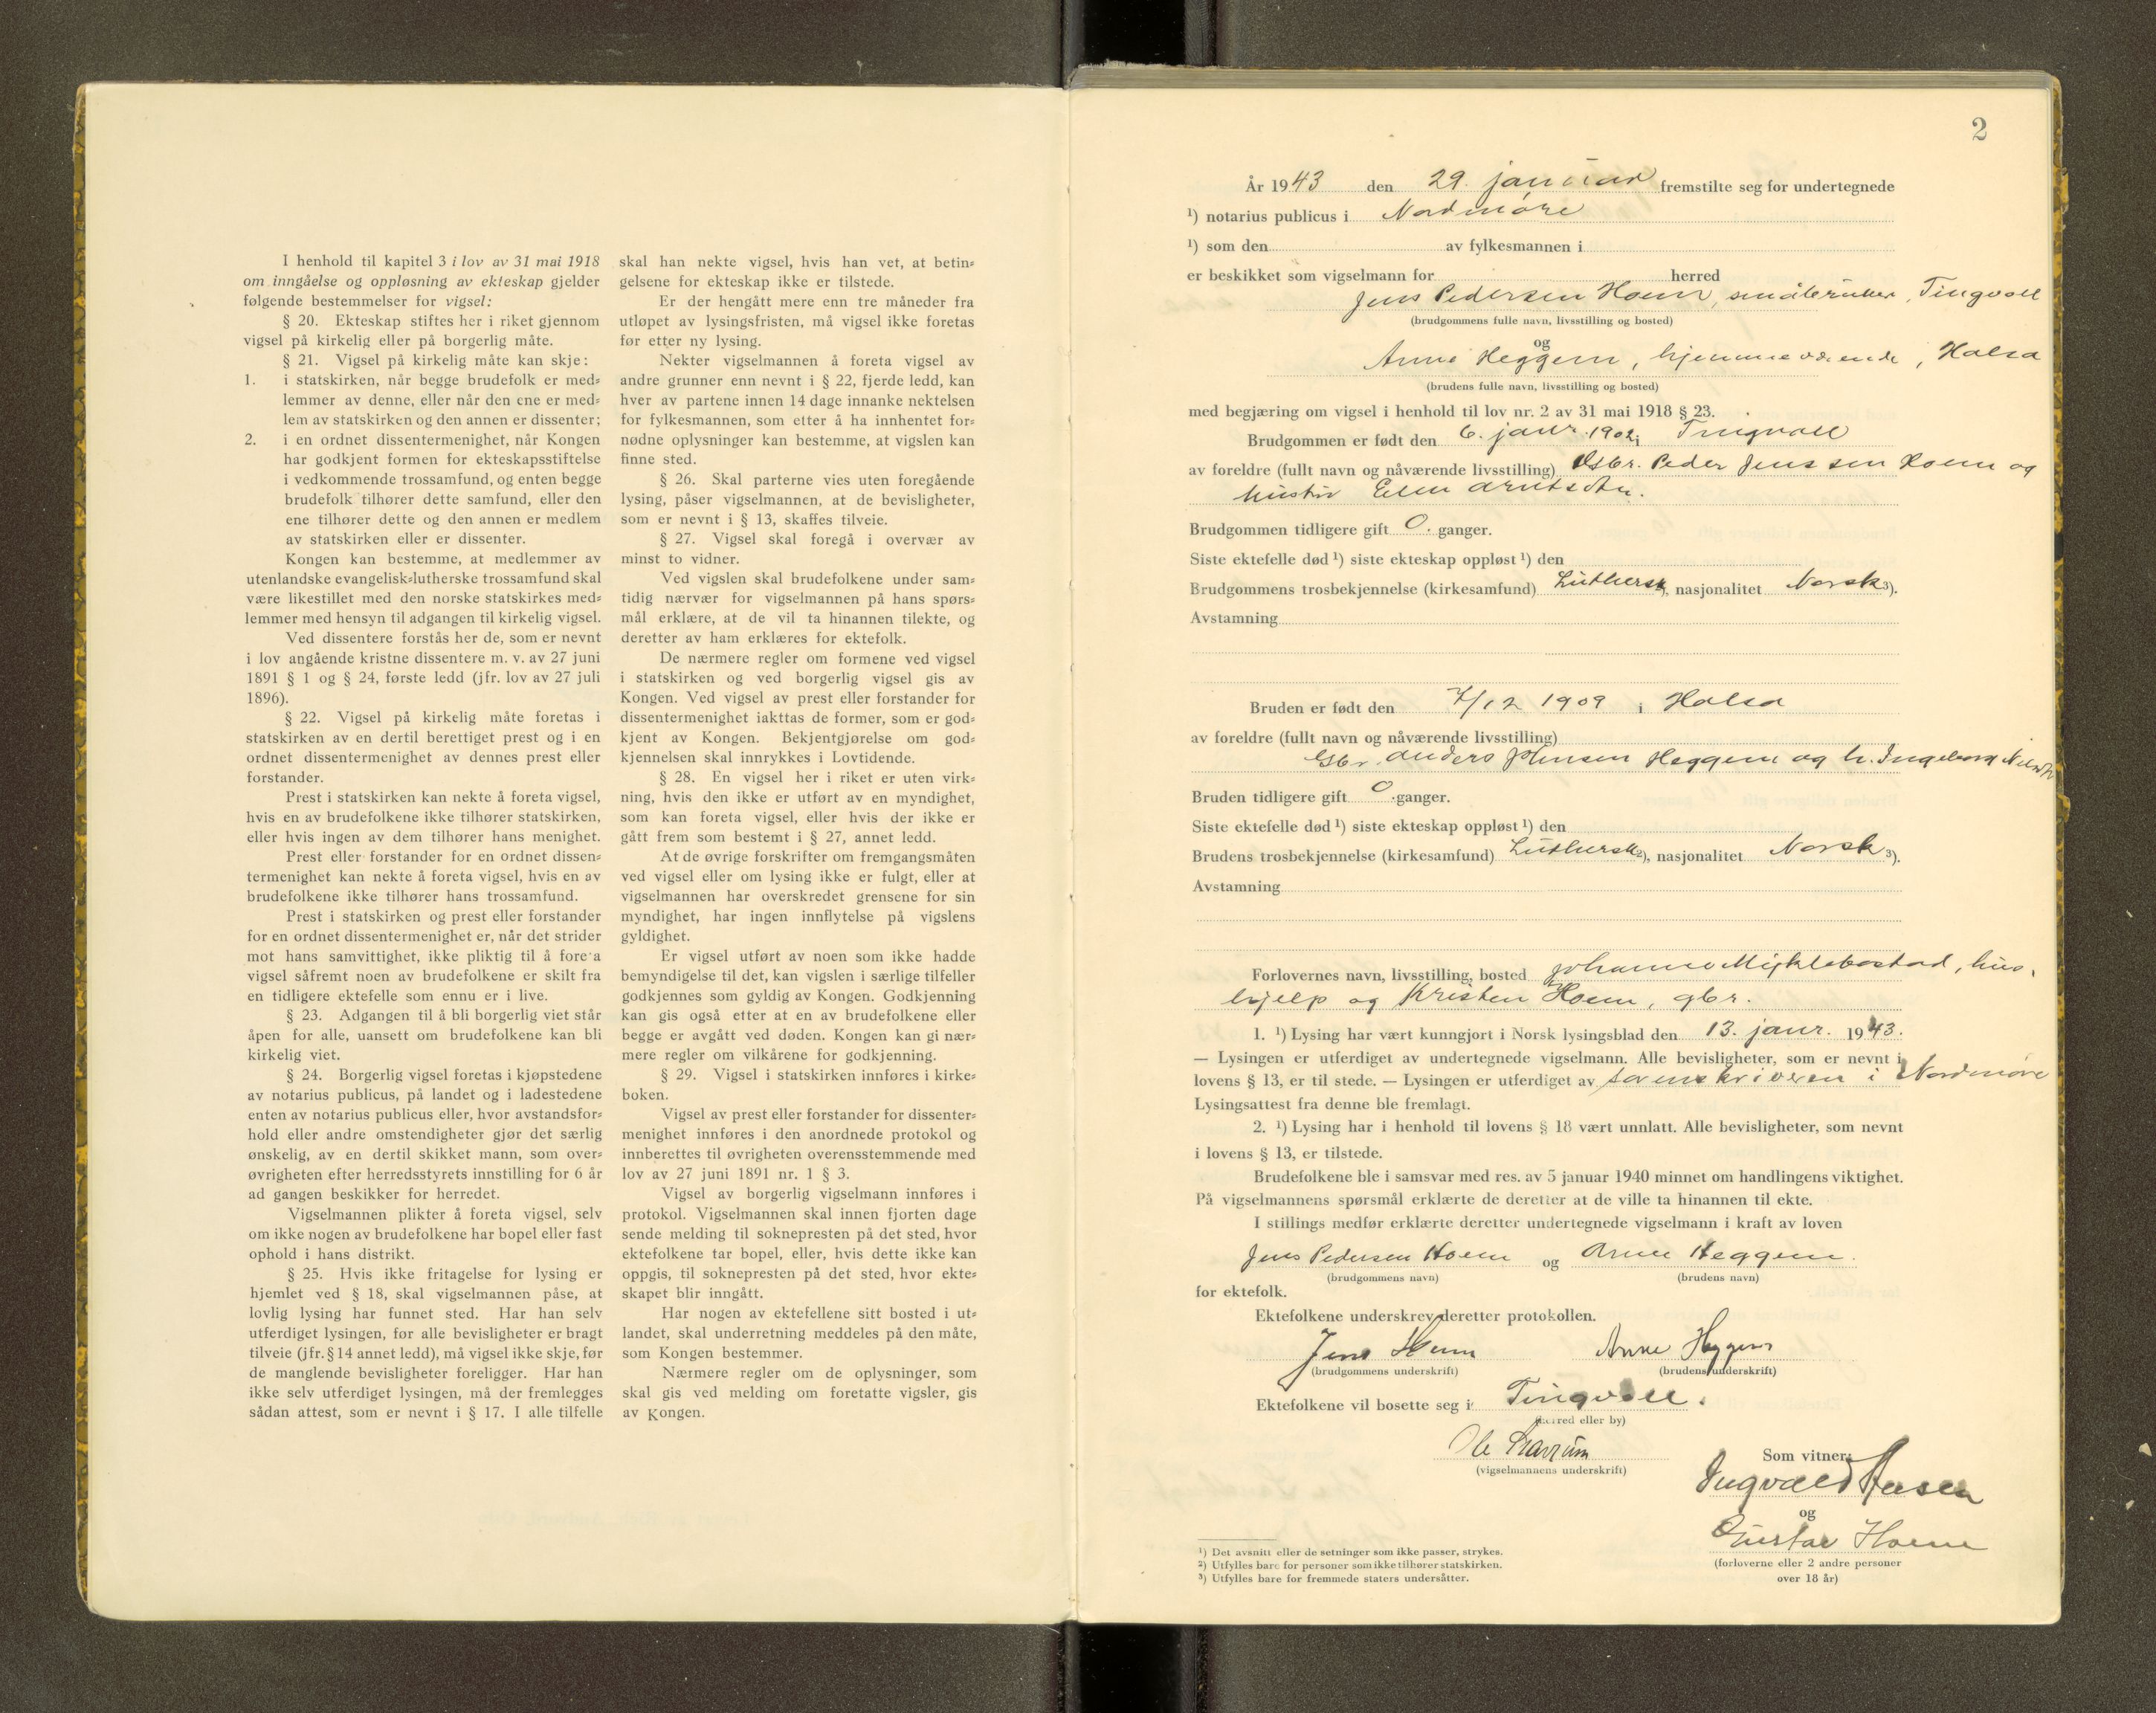 I henhold til kapitel 3 i lov av 31 mai 1918
om inngåelse og oppløsning av ekteskap gjelder
følgende bestemmelser for vigsel:
§ 20. Ekteskap stiftes her i riket gjennom
vigsel på kirkelig eller på borgerlig måte.
§ 21. Vigsel på kirkelig måte kan skje:
1. i statskirken, når begge brudefolk er med-
lemmer av denne, eller når den ene er med-
lem av statskirken og den annen er dissenter;
2. i en ordnet dissentermenighet, når Kongen
har godkjent formen for ekteskapsstiftelse
i vedkommende trossamfund, og enten begge
brudefolk tilhører dette samfund, eller den
ene tilhører dette og den annen er medlem
av statskirken eller er dissenter.
Kongen kan bestemme, at medlemmer av
utenlandske evangelisk-lutherske trossamfund skal
være likestillet med den norske statskirkes med-
lemmer med hensyn til adgangen til kirkelig vigsel.
Ved dissentere forstås her de, som er nevnt
i lov angående kristne dissentere m. v. av 27 juni
1891 § 1 og § 24, første ledd (jfr. lov av 27 juli
1896).
§ 22. Vigsel på kirkelig måte foretas i
statskirken av en dertil berettiget prest og i en
ordnet dissentermenighet av dennes prest eller
forstander.
Prest i statskirken kan nekte å foreta vigsel,
hvis en av brudefolkene ikke tilhører statskirken,
eller hvis ingen av dem tilhører hans menighet.
Prest eller forstander for en ordnet dissen-
termenighet kan nekte å foreta vigsel, hvis en av
brudefolkene ikke tilhører hans trossamfund.
Prest i statskirken og prest eller forstander
for en ordnet dissentermenighet er, når det strider
mot hans samvittighet, ikke pliktig til å fore a
vigsel såfremt noen av brudefolkene er skilt fra
en tidligere ektefelle som ennu er i live.
§ 23. Adgangen til å bli borgerlig viet står
åpen for alle, uansett om brudefolkene kan bli
kirkelig viet.
§ 24. Borgerlig vigsel foretas i kjøpstedene
av notarius publicus, på landet og i ladestedene
enten av notarius publicus eller, hvor avstandsfor-
hold eller andre omstendigheter gjør det særlig
ønskelig, av en dertil skikket mann, som over-
øvrigheten efter herredsstyrets innstilling for 6 år
ad gangen beskikker for herredet.
Vigselmannen plikter å foreta vigsel, selv
om ikke nogen av brudefolkene har bopel eller fast
ophold i hans distrikt.
§ 25. Hvis ikke fritagelse for lysing er
hjemlet ved § 18, skal vigselmannen påse, at
lovlig lysing har funnet sted. Har han selv
utferdiget lysingen, før alle bevisligheter er bragt
tilveie (jfr. § 14 annet ledd), må vigsel ikke skje, før
de manglende bevisligheter foreligger. Har han
ikke selv utferdiget lysingen, må der fremlegges
sådan attest, som er nevnt i § 17. I alle tilfelle
skal han nekte vigsel, hvis han vet, at betin-
gelsene for ekteskap ikke er tilstede.
Er der hengått mere enn tre måneder fra
utløpet av lysingsfristen, må vigsel ikke foretas
før etter ny lysing.
Nekter vigselmannen å foreta vigsel av
andre grunner enn nevnt i § 22, fjerde ledd, kan
hver av partene innen 14 dage innanke nektelsen
for fylkesmannen, som etter å ha innhentet for-
nødne oplysninger kan bestemme, at vigslen kan
finne sted.
§ 26. Skal parterne vies uten foregående
lysing, påser vigselmannen, at de bevisligheter,
som er nevnt i § 13, skaffes tilveie.
§ 27. Vigsel skal foregå i overvær av
minst to vidner.
Ved vigslen skal brudefolkene under sam-
tidig nærvær for vigselmannen på hans spørs-
mål erklære, at de vil ta hinannen tilekte, og
deretter av ham erklæres for ektefolk.
De nærmere regler om formene ved vigsel
i statskirken og ved borgerlig vigsel gis av
Kongen. Ved vigsel av prest eller forstander for
dissentermenighet iakttas de former, som er god-
kjent av Kongen. Bekjentgjørelse om god-
kjennelsen skal innrykkes i Lovtidende.
§ 28. En vigsel her i riket er uten virk-
ning, hvis den ikke er utført av en myndighet,
som kan foreta vigsel, eller hvis der ikke er
gått frem som bestemt i § 27, annet ledd.
At de øvrige forskrifter om fremgangsmåten
ved vigsel eller om lysing ikke er fulgt, eller at
vigselmannen har overskredet grensene for sin
myndighet, har ingen innflytelse på vigslens
gyldighet.
Er vigsel utført av noen som ikke hadde
bemyndigelse til det, kan vigslen i særlige tilfeller
godkjennes som gyldig av Kongen. Godkjenning
kan gis også etter at en av brudefolkene eller
begge er avgått ved døden. Kongen kan gi nær-
mere regler om vilkårene for godkjenning.
§ 29. Vigsel i statskirken innføres i kirke-
boken.
Vigsel av prest eller forstander for dissenter-
menighet innføres i den anordnede protokol og
innberettes til øvrigheten overensstemmende med
lov av 27 juni 1891 nr. 1 § 3.
Vigsel av borgerlig vigselmann innføres i
protokol. Vigselmannen skal innen fjorten dage
sende melding til soknepresten på det sted, hvor
ektefolkene tar bopel, eller, hvis dette ikke kan
oppgis, til soknepresten på det sted, hvor ekte-
skapet blir inngått.
Har nogen av ektefellene sitt bosted i ut-
landet, skal underretning meddeles på den måte,
som Kongen bestemmer.
Nærmere regler om de oplysninger, som
skal gis ved melding om foretatte vigsler, gis
av Kongen.
2
År 1943 den 29. januar fremstilte seg for undertegnede
1) notarius publicus i Nordmøre
1) som den av fylkesmannen i
er beskikket som vigselmann for herred
Jens Pedersen Hoem, småbruker, Tingvoll
(brudgommens fulle navn, livsstilling og bosted)
og
Anne Heggem, hjemmeværende, Halsa
(brudens fulle navn, livsstilling og bosted)
med begjæring om vigsel i henhold til lov nr. 2 av 31 mai 1918 § 23.
Brudgommen er født den 6. janr. 1902 i Tingvoll
av foreldre (fullt navn og nåværende livsstilling) Gbr. Peder Jenssen Hoem og
hustru Elen Arntsdtr.
Brudgommen tidligere gift 0. ganger.
Siste ektefelle død 1) siste ekteskap oppløst 1) den
Brudgommens trosbekjennelse (kirkesamfund) Luthersk, nasjonalitet Norsk 3).
Avstamning
Bruden er født den 7/12 1909 i Halsa
av foreldre (fullt navn og nåværende livsstilling)
Gbr. Anders Johnsen Heggem og h. Ingeborg Nilsdtr
Bruden tidligere gift 0 ganger.
Siste ektefelle død 1) siste ekteskap oppløst 1) den
Brudens trosbekjennelse (kirkesamfund) Luthersk 2), nasjonalitet Norsk 3).
Avstamning
Forlovernes navn, livsstilling, bosted Johanne Myklebostad, hus-
hjelp og Kristen Hoem, gbr.
1. 1) Lysing har vært kunngjort i Norsk lysingsblad den 13. janr. 1943.
— Lysingen er utferdiget av undertegnede vigselmann. Alle bevisligheter, som er nevnt i
lovens § 13, er til stede. — Lysingen er utferdiget av sorenskriveren i Nordmøre
Lysingsattest fra denne ble fremlagt.
2. 1) Lysing har i henhold til lovens § 18 vært unnlatt. Alle bevisligheter, som nevnt
i lovens § 13, er tilstede.
Brudefolkene ble i samsvar med res. av 5 januar 1940 minnet om handlingens viktighet.
På vigselmannens spørsmål erklærte de deretter at de ville ta hinannen til ekte.
I stillings medfør erklærte deretter undertegnede vigselmann i kraft av loven
Jens Pedersen Hoem og Anne Heggem.
(brudgommens navn) (brudens navn)
for ektefolk.
Ektefolkene underskrev deretter protokollen.
Jens Hoem Anne Heggem
(brudgommens underskrift) (brudens underskrift)
Ektefolkene vil bosette seg i Tingvoll.
(herred eller by)
Ole
(vigselmannens underskrift)
Som vitner:
Ingvald
og
Gustav Hoem
(forloverne eller 2 andre personer
over 18 år)
1) Det avsnitt eller de setninger som ikke passer, strykes.
2) Utfylles bare for personer som ikke tilhører statskirken.
3) Utfylles bare for fremmede staters undersåtter.